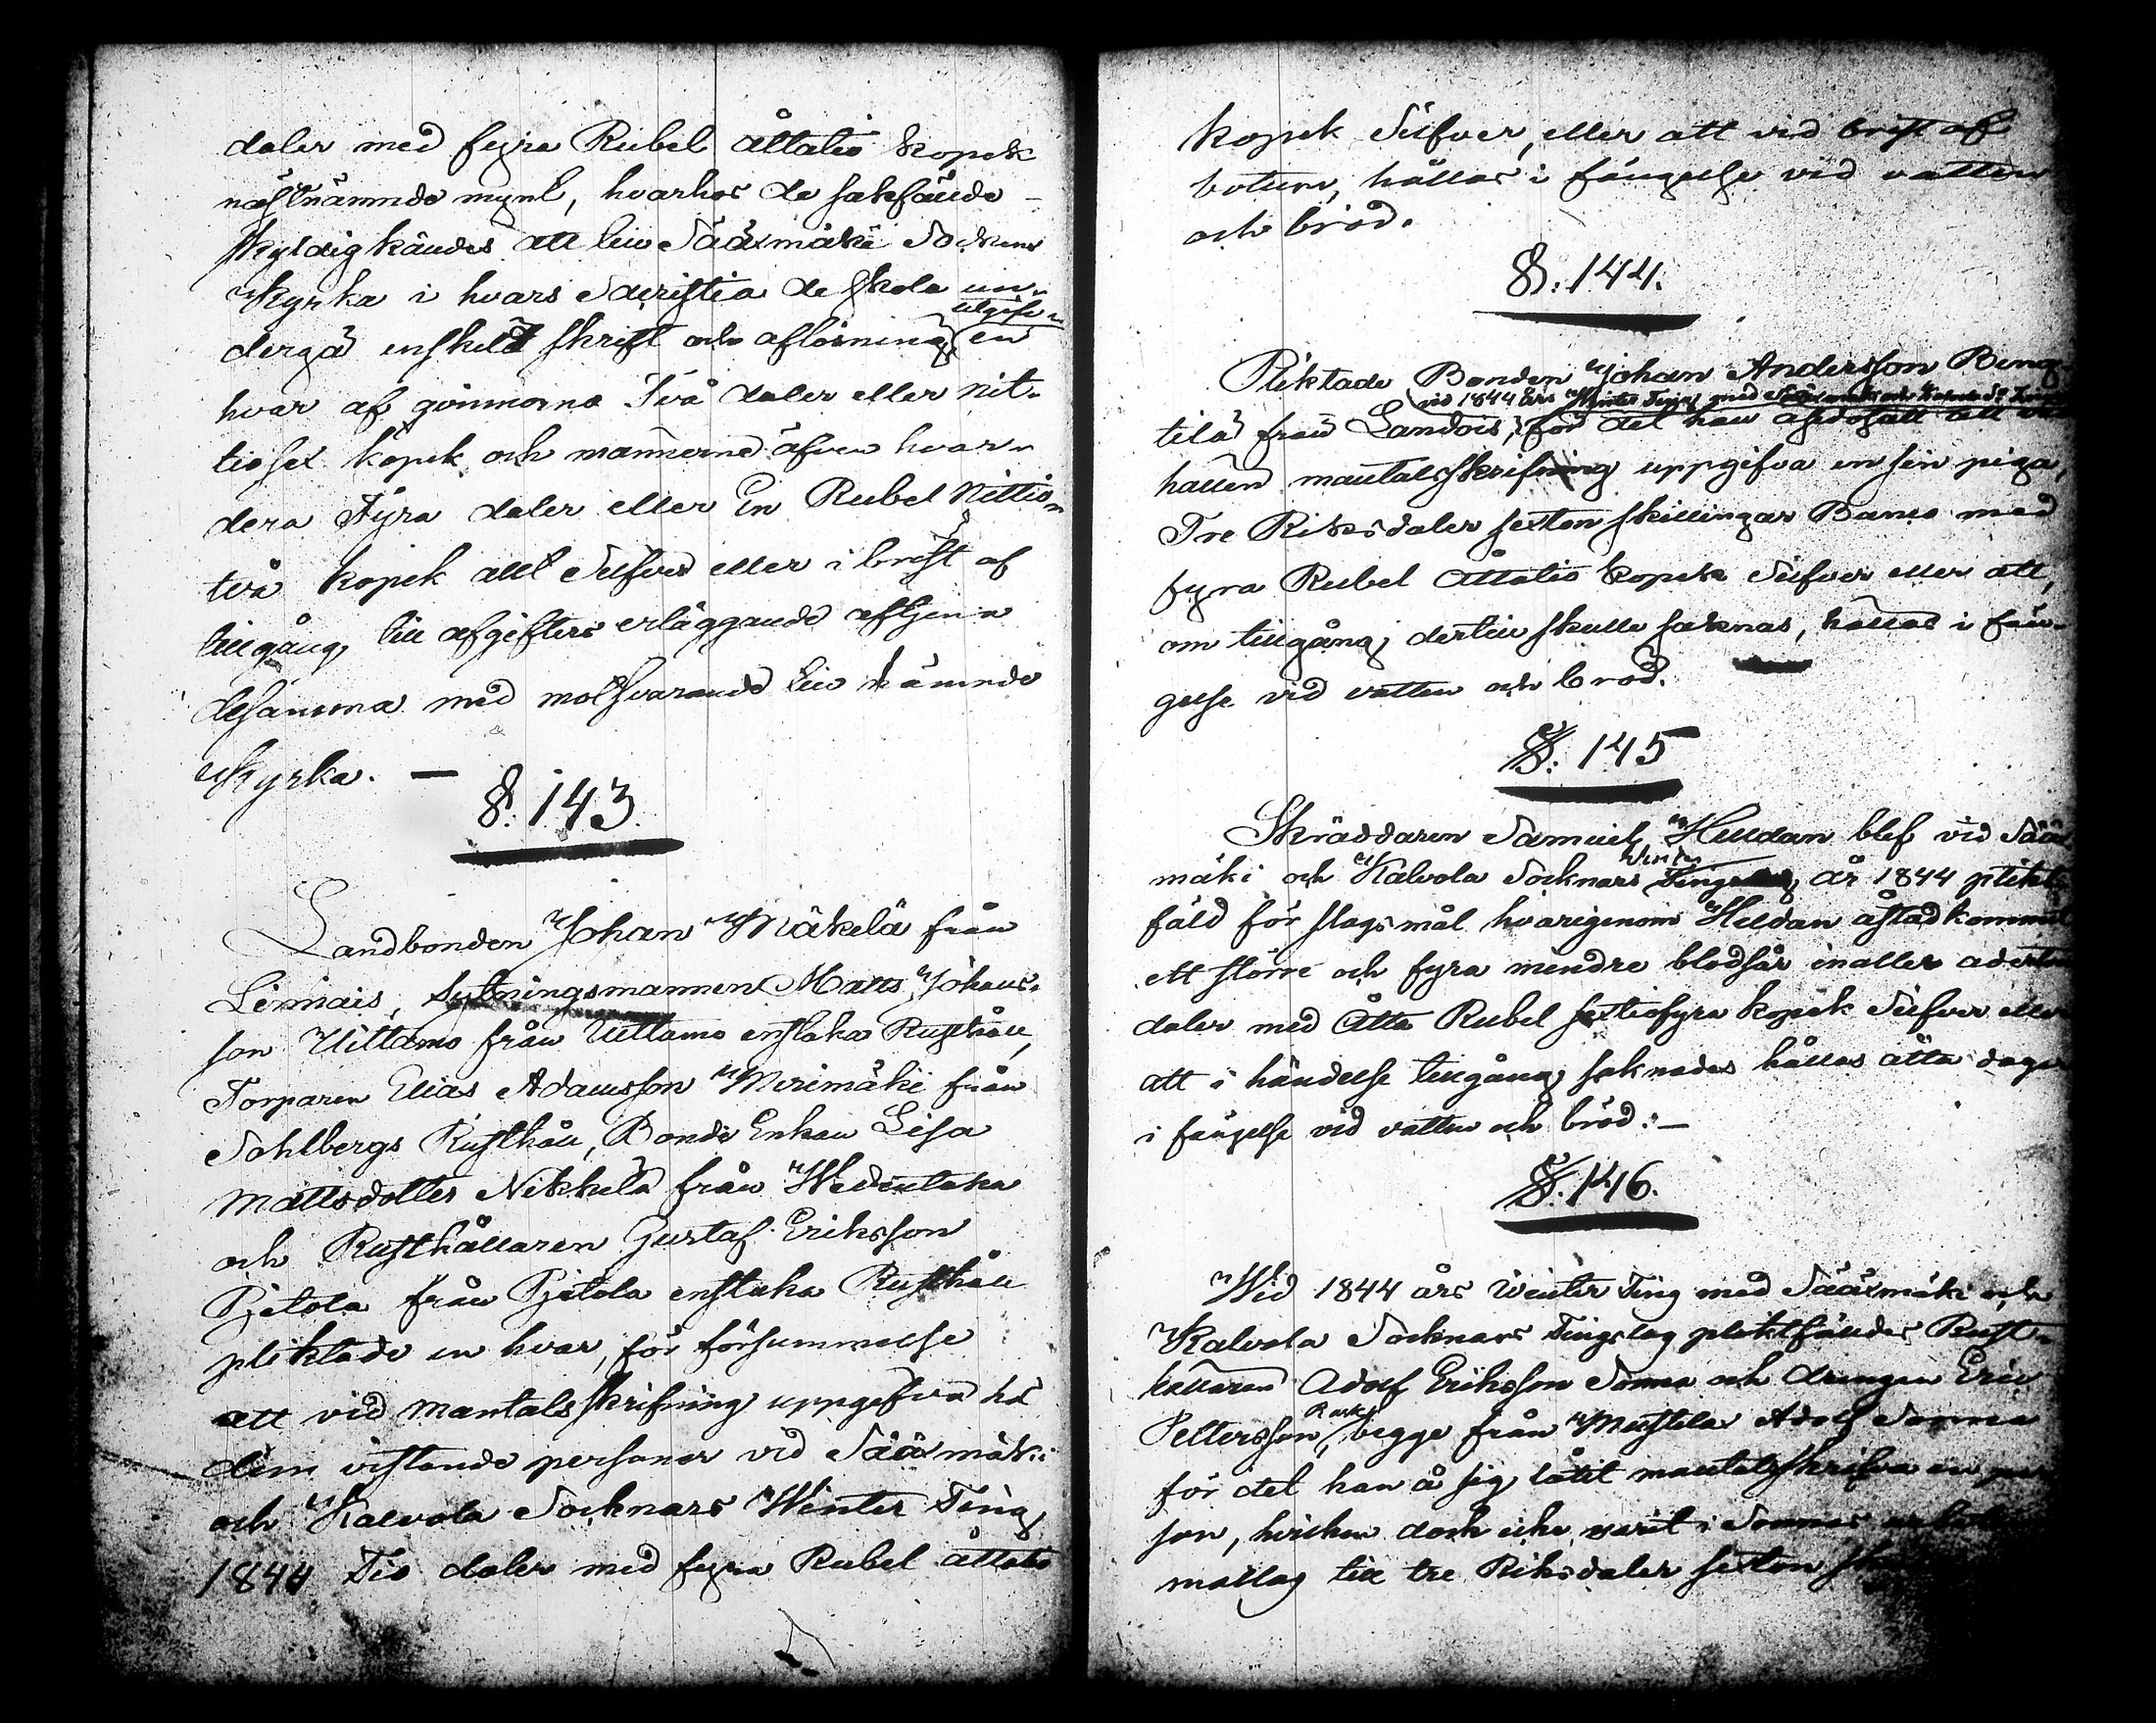 daler med fyra Rubel åttatio kopek
nästnämnde mynt, hvarhos de sakfäude
skyldigkändes att till Sääxmäki Sockens
Kyrka i hvars Sacristia de skola un-
dergå enskild skrift och aflösning, utgifva en
hvar af qvinnorna Två daler eller nit-
tiosex kopek och männerne äfven hvar-
dera Fyra daler eller En Rubel Nittio-
två kopek allt Silfver eller i brist af
tillgång till afgifters erläggande aftjena
desamma med motsvarande till nämnde
Kyrka. —
§. 143.
Landbonden Johan Mäkelä från
Linnais, Sytningsmannen Matts Johans-
son Uittamo från Uittamo enstaka Rusthåll,
Torparen Elias Adamsson Merimäki från
Sohlbergs Rusthåll, Bonde Enkan Lisa
Mattsdotter Nikkilä från Wedentaka
och Rusthållaren Gustaf Eriksson
Pjetola från Pjetola enstaka Rusthåll
pliktade en hvar, för försummelse
att vid Mantalsskrifning uppgifva hos
dem vistande personer vid Sääxmäki
och Kalvola Socknars Winter Ting
1844 Tio daler med fyra Rubel åttatio
kopek Silfver, eller att vid brist af
botum, hållas i fängelse vid vatten
och bröd.
§. 144.
Pliktade Bonden Johan Andersson
tilä från Landois, vid 1844 års Winter Ting med Sääxmäki och Kalvola för det han att
hållen mantalsskrifning uppgifva en sin piga,
Tre Riksdaler sexton skillingar Banco med
fyra Rubel Åttatio kopek Silfver eller att,
om tillgång dertill skulle saknas, hållas i fän-
gelse vid vatten och bröd.
§. 145
Skräddaren Samuel Helldan blef vid Sääx
mäki och Kalvola Socknars Winter Ting år 1844 plikt
fäld för slagsmål hvarigenom Helldan åstadkommit
ett större och fyra mindre blodsår inalles aderton
daler med Åtta Rubel sextiofyra kopek Silfver eller
att i händelse tillgång saknades hållas åtta dagar
i fängelse vid vatten och bröd: —
§. 146.
Wid 1844 års Winter Ting med Sääxmäki och
Kalvola Socknars Tingslag pliktfäldes Rust-
hållaren Adolf Eriksson Sonna och drängen Eric
Pettersson Rusk, begge från Mustila Adolf Sonna
för det han å sig låtit mantalsskrifva en per
son, hvilken dock icke varit i Sonnas
mållag till tre Riksdaler sexton